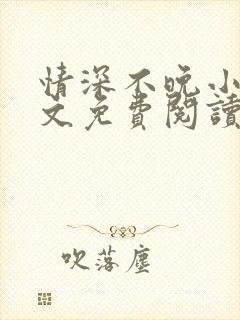 情深不晚小
文免費閱讀
吹落塵